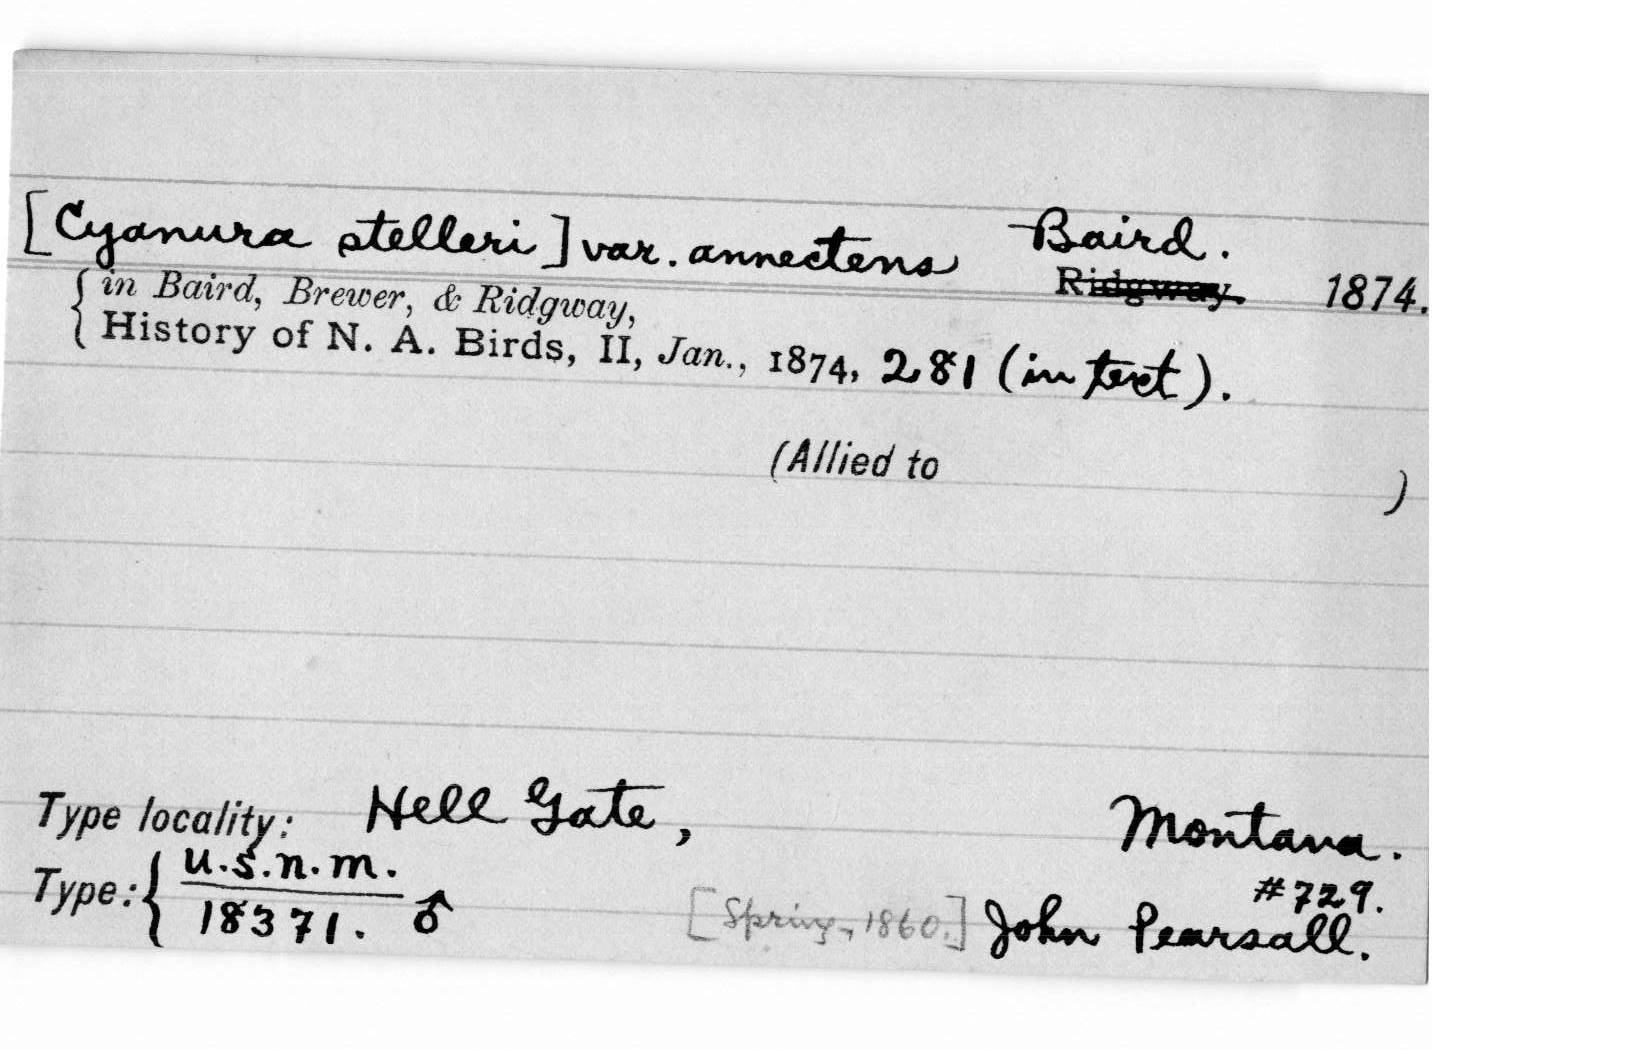 [Cyanura stelleri] var. annectens Baird.
Ridgway. 1874.
in Baird, Brewer, & Ridgway,
History of N. A. Birds, II, Jan., 1874, 281 (in text).
(Allied to )
Type locality: Hell Gate, Montana.
Type: { U.S.N.M.
18371. ♂ [Spring, 1860.] #729.
John Pearsall.